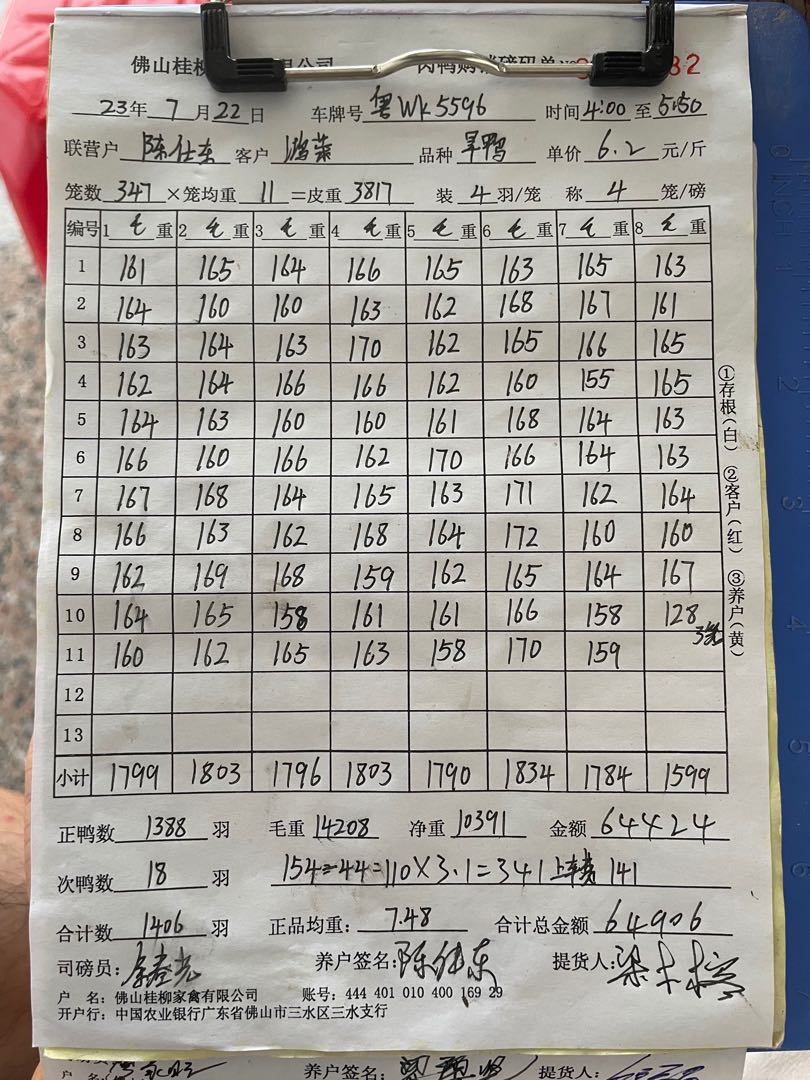 佛山桂柳 有限公司 肉鸭购 磅码单 32
23年 7月22日 车牌号 粤WK5596 时间 4:00 至 5:50
联营户 陈仕东 客户 鸿業 品种 旱鸭 单价 6.2 元/斤
笼数 347 ×笼均重 11 =皮重 3817 装 4 羽/笼 称 4 笼/磅
编号 1 毛重 2 毛重 3 毛重 4 毛重 5 毛重 6 毛重 7 毛重 8 毛重
1 161 165 164 166 165 163 165 163
2 164 160 160 163 162 168 167 161
3 163 164 163 170 162 165 166 165
4 162 164 166 166 162 160 155 165
5 164 163 160 160 161 168 164 163
6 166 160 166 162 170 166 164 163
7 167 168 164 165 163 171 162 164
8 166 163 162 168 164 172 160 160
9 162 169 168 159 162 165 164 167
10 164 165 158 161 161 166 158 128
3笼
11 160 162 165 163 158 170 159
12
13
小计 1799 1803 1796 1803 1790 1834 1784 1599
①存根(白) ②客户(红) ③养户(黄)
正鸭数 1388 羽 毛重 14208 净重 10391 金额 64424
次鸭数 18 羽 154-44=110×3.1=341 上车费 141
合计数 1406 羽 正品均重: 7.48 合计总金额 64906
司磅员: 养户签名: 陈仕东 提货人:
户 名: 佛山桂柳家禽有限公司 账号: 444 401 010 400 169 29
开户行: 中国农业银行广东省佛山市三水区三水支行
养户签名: 提货人: